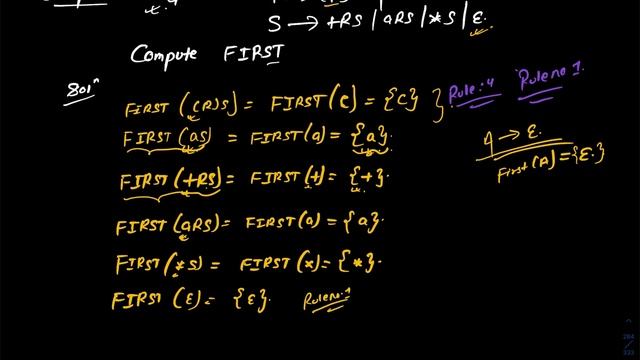 S → +RS | aRS | *S | ε.
Compute FIRST
Solⁿ
FIRST ((R)S) = FIRST(C) = {C} } Rule:4 Rule no 1.
FIRST (aS) = FIRST(a) = {a}.
A → ε.
First(A) = {ε.}
FIRST (+RS) = FIRST(+) = {+}.
FIRST (aRS) = FIRST(a) = {a}.
FIRST (*S) = FIRST(*) = {*}.
FIRST (ε) = {ε}. Rule no:1